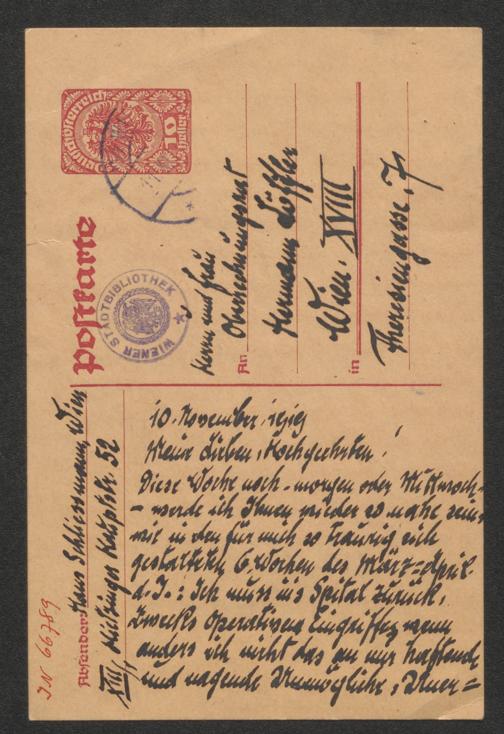 Deutschösterreich
10
Heller
Postkarte
WIENER STADTBIBLIOTHEK
Herrn und Frau
An Oberrechnungsrat
Hermann Löffler
Wien. XVIII
in Theresiengasse. 7
Absender: Hans Schliessmann, Wien
XIII, Hietzinger Hauptstr. 52
IN 66789
10. November. 1919
Meine Lieben, Hochgeehrten!
Diese Woche noch – morgen oder Mittwoch –
– werde ich Ihnen wieder so nahe sein,
wie in den für mich so traurig sich
gestalteten 6 Wochen des März=April
d. J.: Ich muss ins Spital zurück,
zwecks operativen Eingriffes, wenn
anders ich nicht das an mir haftende
und nagende Unmögliche, Uner=